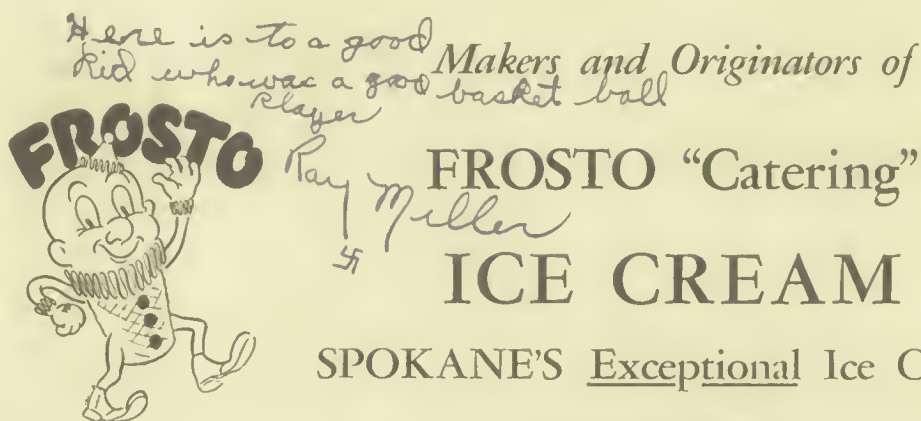 Here is to a good
Kid who wac a good basket ball
Player
Ray Miller
卐
Makers and Originators of
FROSTO
FROSTO “Catering”
ICE CREAM
SPOKANE'S Exceptional Ice C